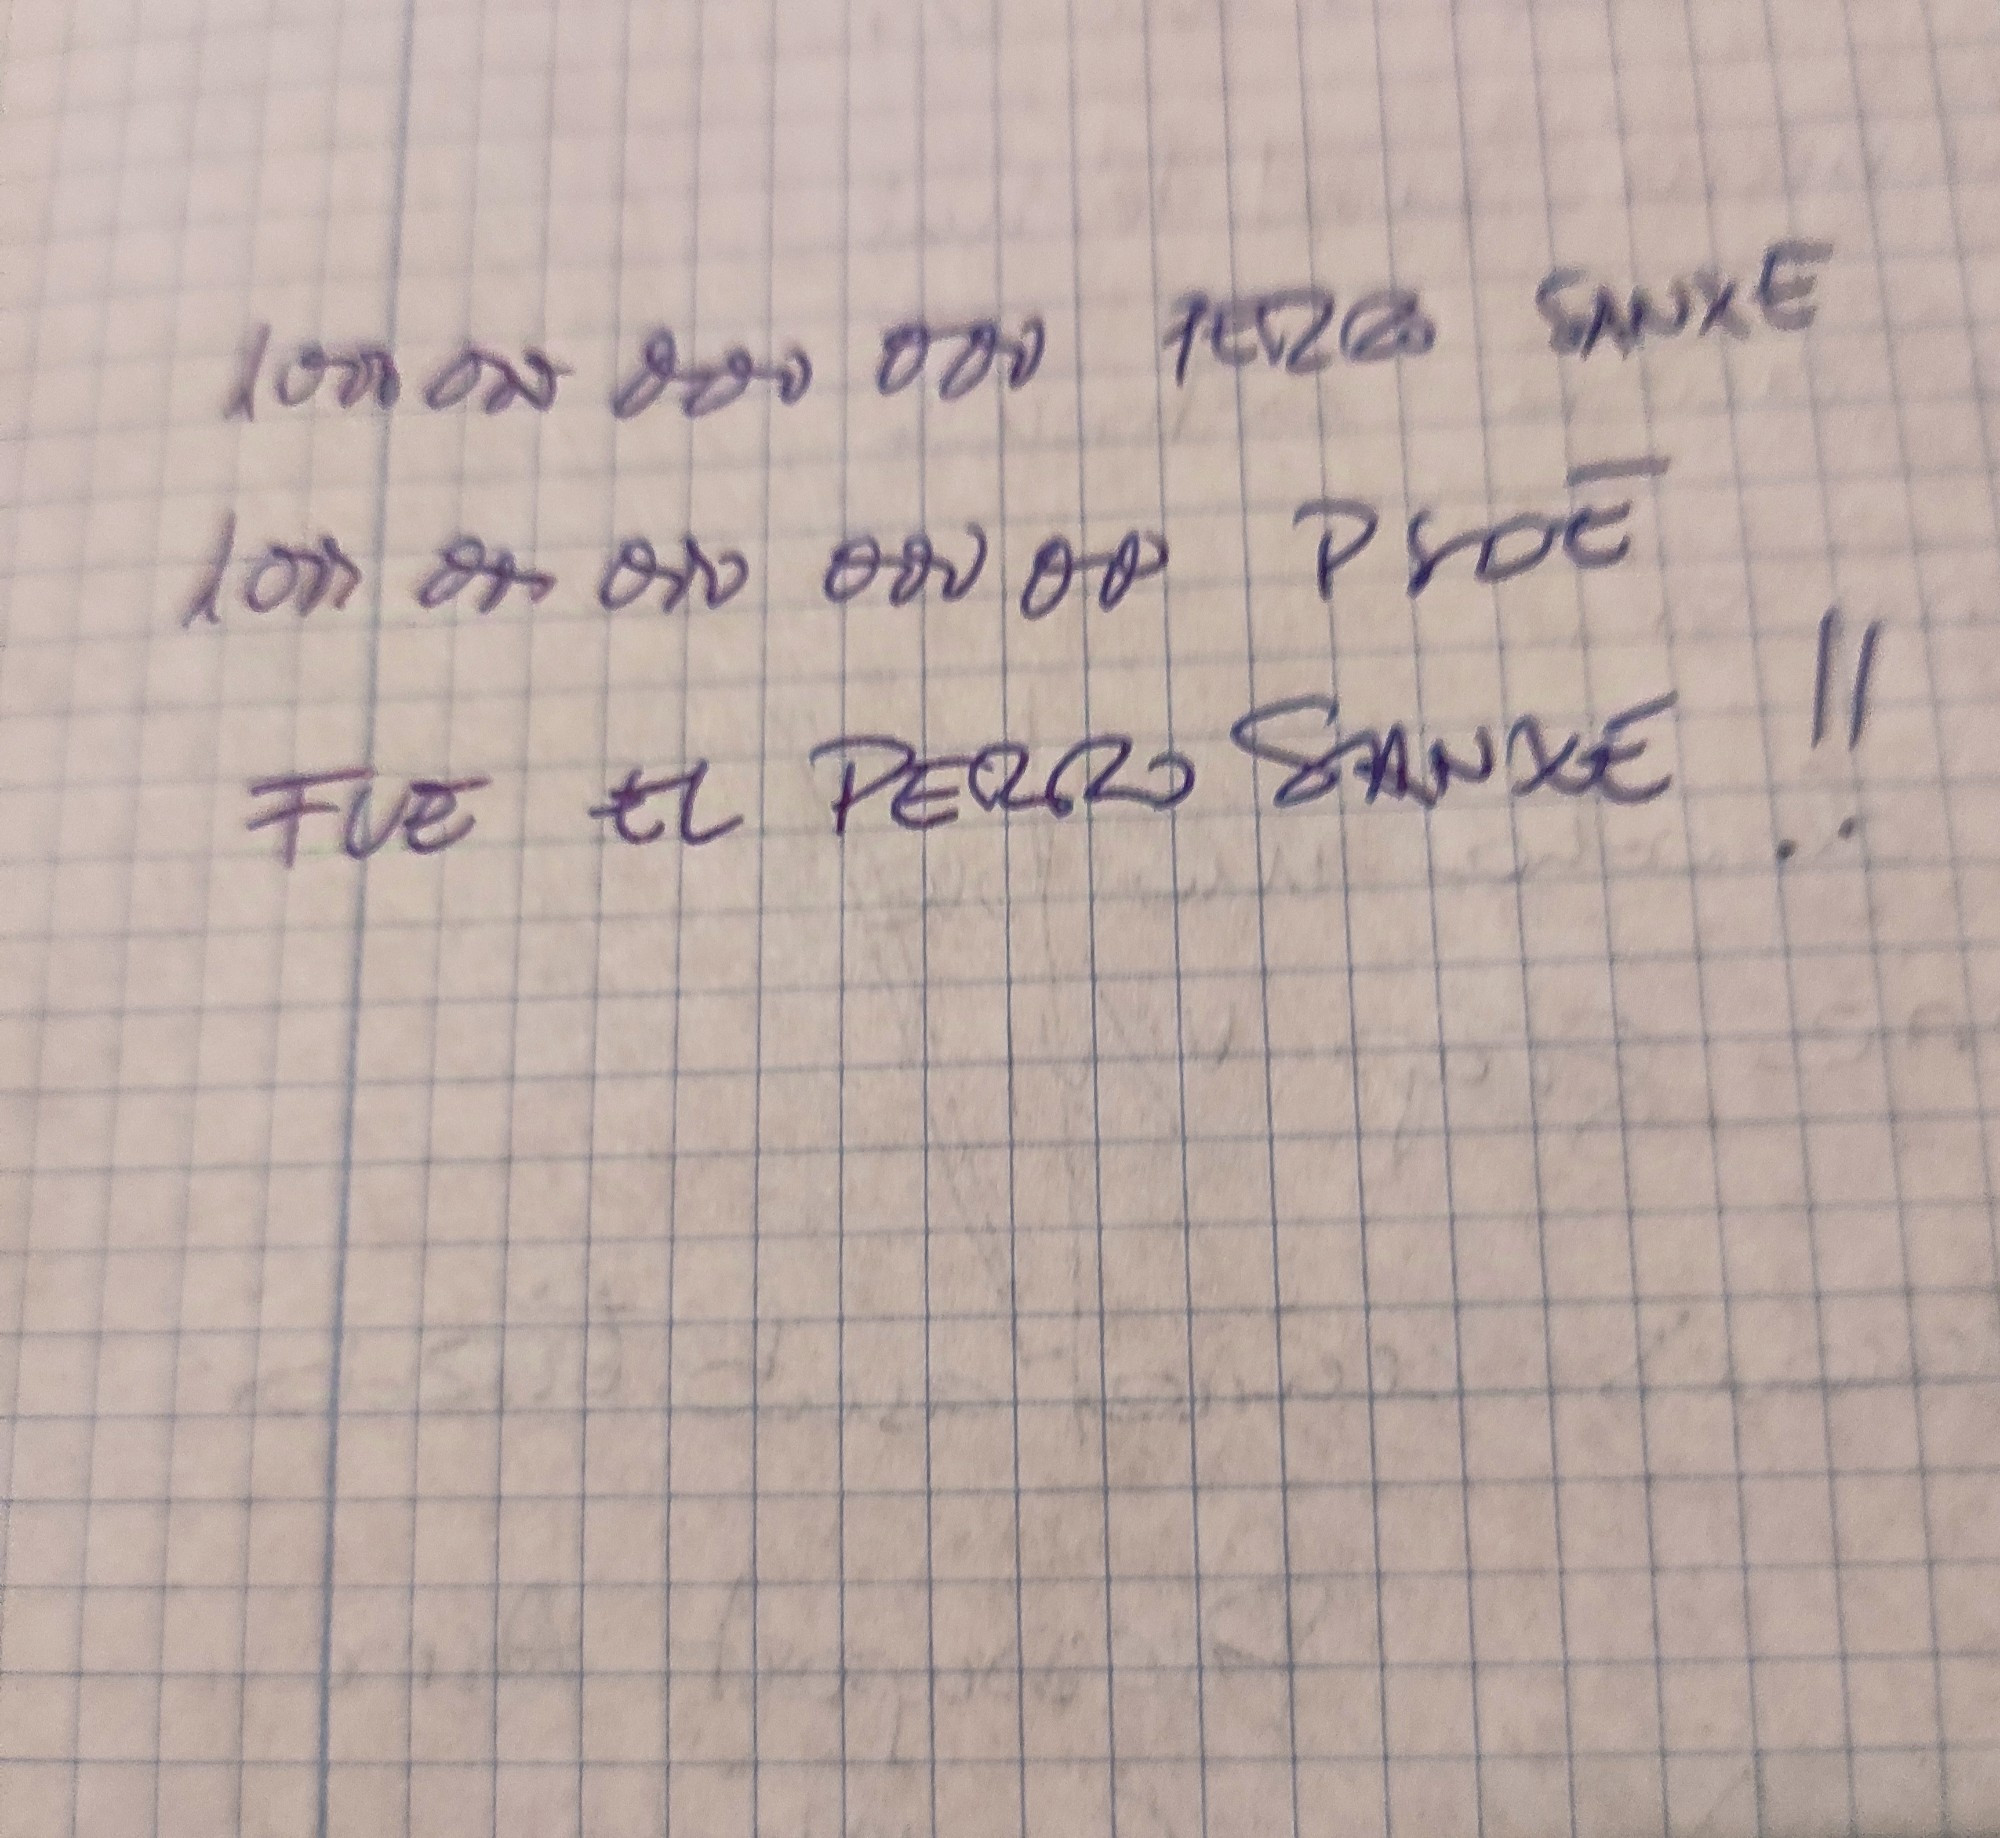 1000 000 000 000 PERRO SANXE
1000 000 000 000 000 PSOE
FUE EL PERRO SANXE !!